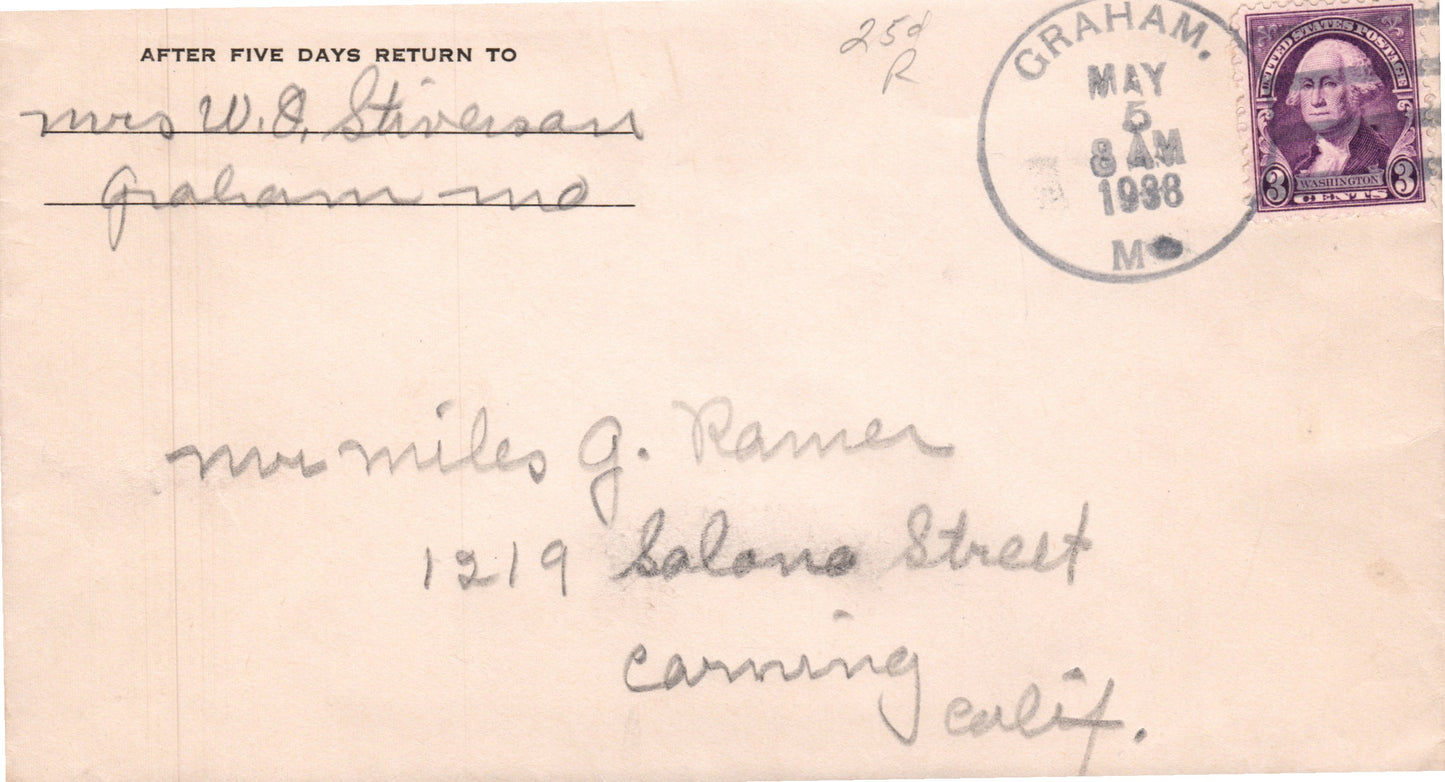 AFTER FIVE DAYS RETURN TO
Mrs W. O. Stiverson
Graham Mo
25¢
R
GRAHAM.
MAY
5
8 AM
1938
MO
UNITED STATES POSTAGE
3 WASHINGTON 3
CENTS
Mr Miles G. Ramer
1219 Solano Street
Corning
Calif.